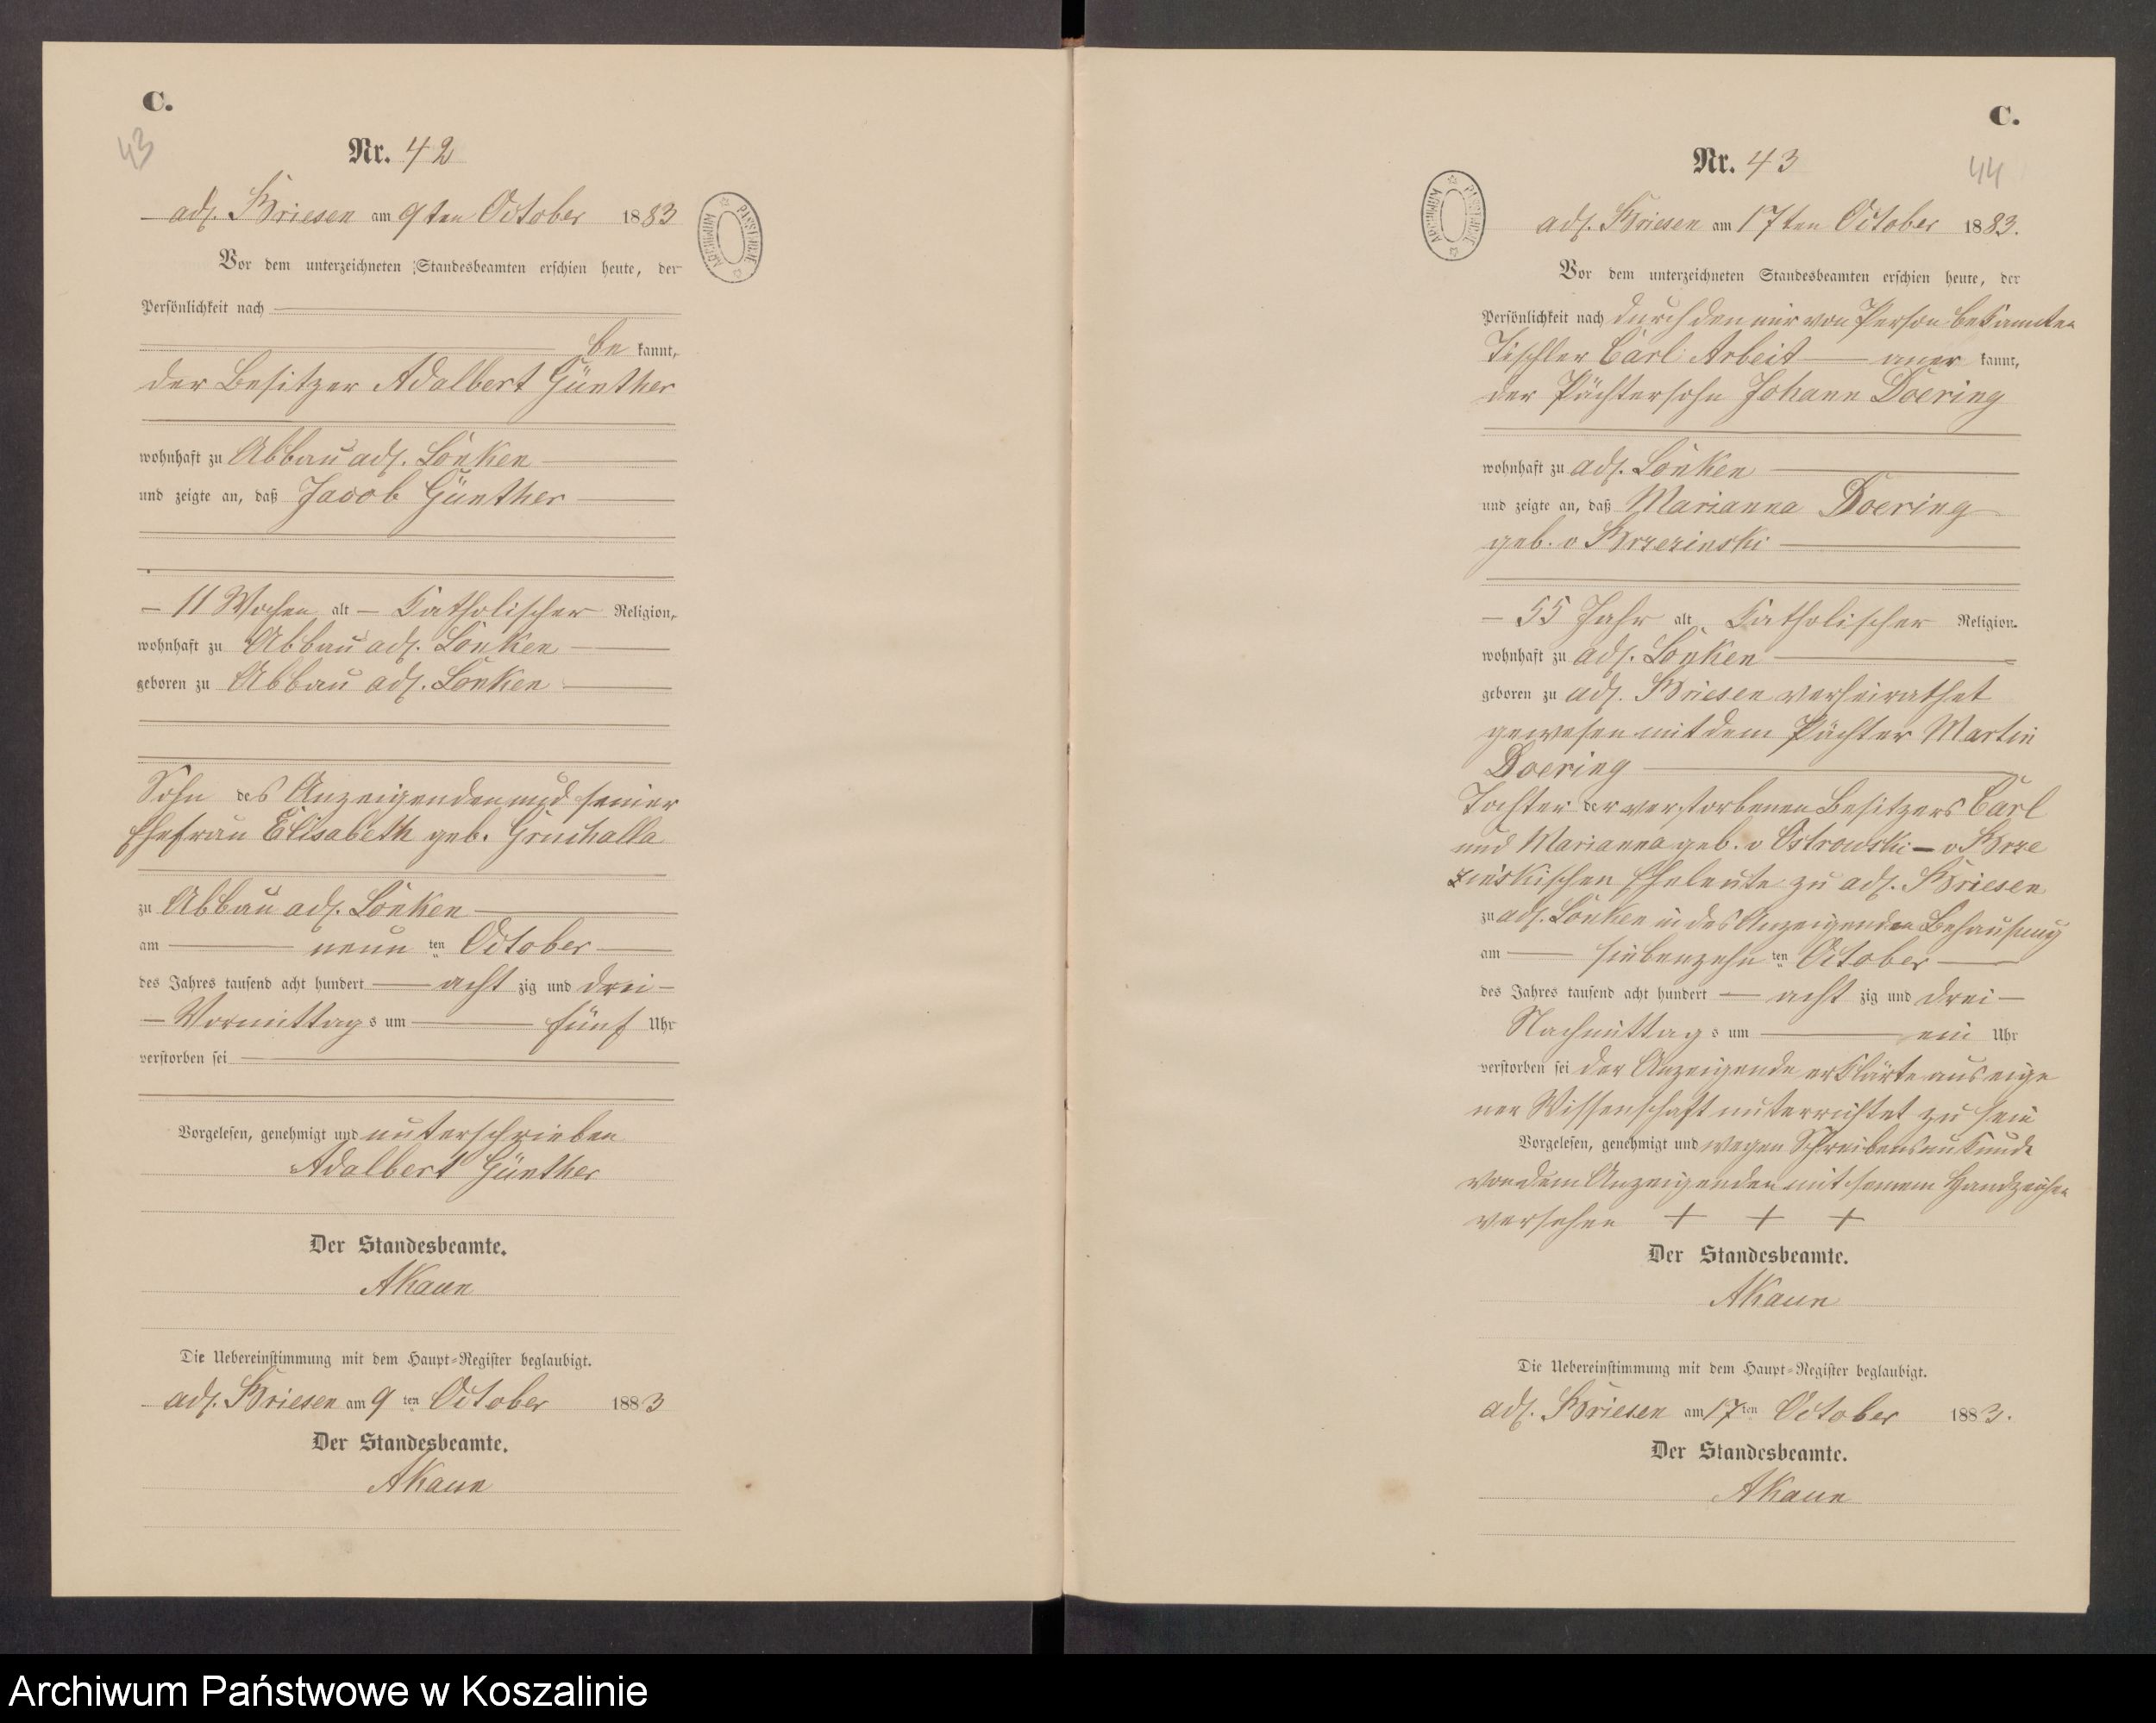 C.
43
Nr. 42
adl. Briesen am 9ten October 1883
Vor dem unterzeichneten Standesbeamten erschien heute, der
Persönlichkeit nach
be kannt,
der Besitzer Adalbert Günther
wohnhaft zu Abbau adl. Lonken
und zeigte an, daß Jacob Günther
11 Wochen alt Katholischer Religion,
wohnhaft zu Abbau adl. Lonken
geboren zu Abbau adl. Lonken
Sohn des Anzeigenden und seiner
Ehefrau Elisabeth geb. Gruchalla
zu Abbau adl. Lonken
am neun ten October
des Jahres tausend acht hundert acht zig und drei
Vormittags um fünf Uhr
verstorben sei
Vorgelesen, genehmigt und unterschrieben
Adalbert Günther
Der Standesbeamte.
AKaun
Die Uebereinstimmung mit dem Haupt-Register beglaubigt.
adl. Briesen am 9 ten October 1883
Der Standesbeamte.
AKaun
ARCHIWUM PAŃSTWOWE
C.
44
Nr. 43
adl. Briesen am 17ten October 1883.
Vor dem unterzeichneten Standesbeamten erschien heute, der
Persönlichkeit nach durch den mir von Person bekannten
Tischler Carl Arbeit aner kannt,
der Pächtersohn Johann Doering
wohnhaft zu adl. Lonken
und zeigte an, daß Marianna Doering
geb. v Brzezinski
55 Jahr alt, Katholischer Religion.
wohnhaft zu adl. Lonken
geboren zu adl. Briesen verheirathet
gewesen mit dem Pächter Martin
Doering
Tochter der verstorbenen Besitzers Carl
und Marianna geb. v Ostrowski - v Brze
zinskischen Eheleute zu adl. Briesen
zu adl. Lonken in des Anzeigenden Behausung
am siebenzehn ten October
des Jahres tausend acht hundert acht zig und drei
Nachmittags um ein Uhr
verstorben sei der Anzeigende erklärte aus eige
ner Wissenschaft unterrichtet zu sein
Vorgelesen, genehmigt und wegen Schreibensunkunde
von dem Anzeigenden mit seinem Handzeichen
versehen + + +
Der Standesbeamte.
AKaun
Die Uebereinstimmung mit dem Haupt-Register beglaubigt.
adl. Briesen am 17 ten October 1883.
Der Standesbeamte.
AKaun
ARCHIWUM PAŃSTWOWE
Archiwum Państwowe w Koszalinie